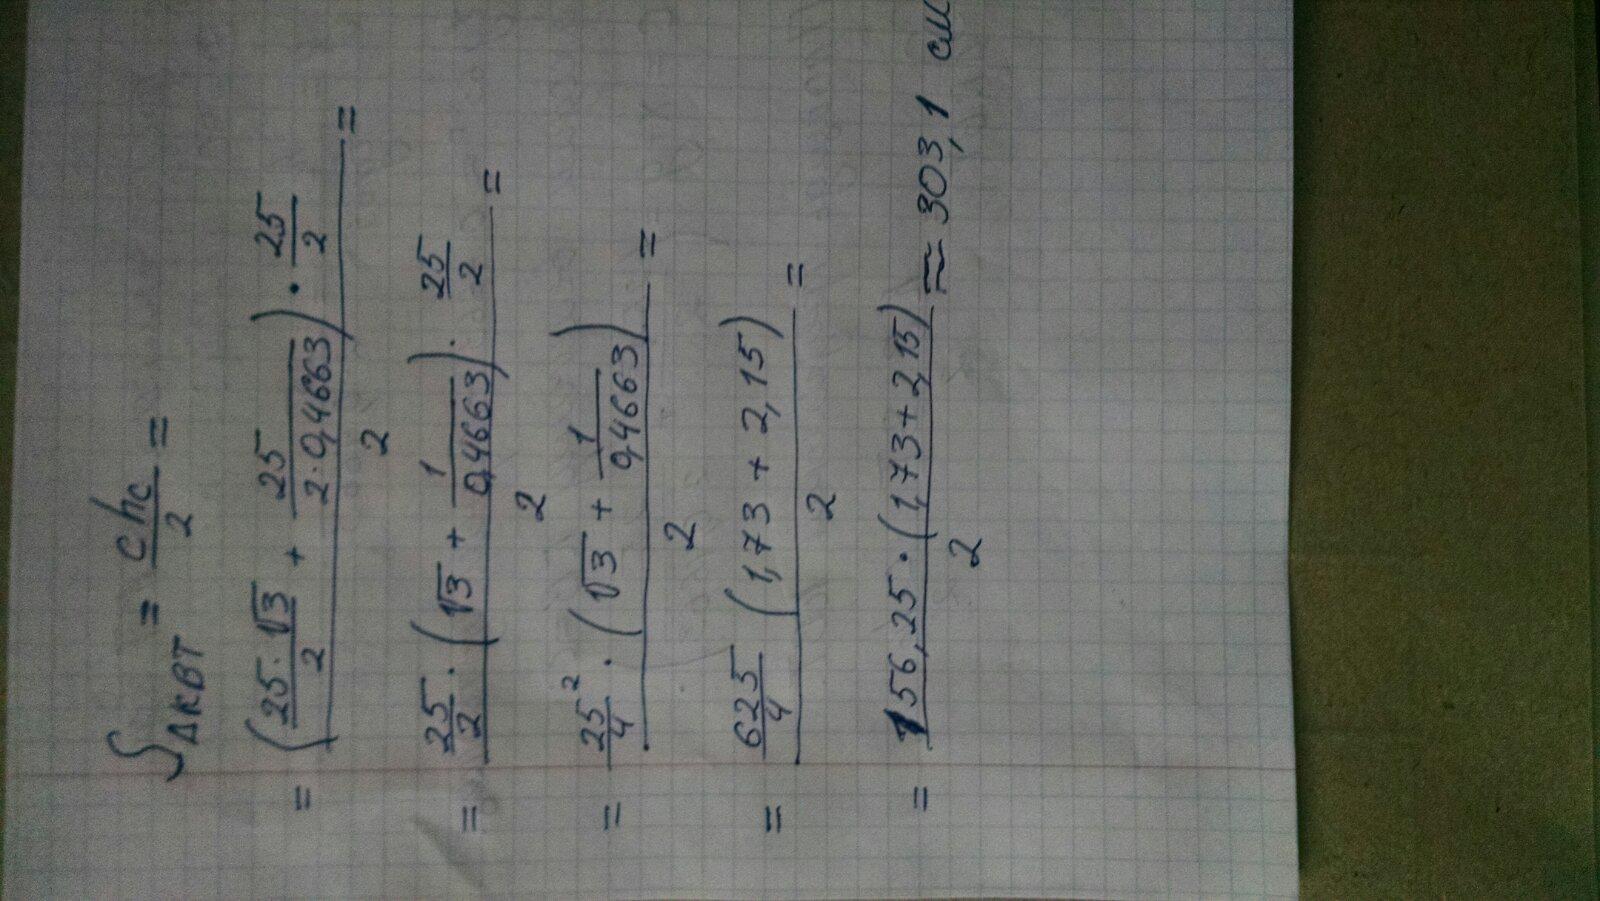 S ΔКВТ = c hc / 2 =
= ((25·√3)/2 + 25/(2·0,4663)) · 25/2 / 2 =
= 25/2 · (√3 + 1/0,4663) · 25/2 / 2 =
= 25²/4 · (√3 + 1/0,4663) / 2 =
= 625/4 (1,73 + 2,15) / 2 =
= 156,25 · (1,73 + 2,15) / 2 ≈ 303,1 см